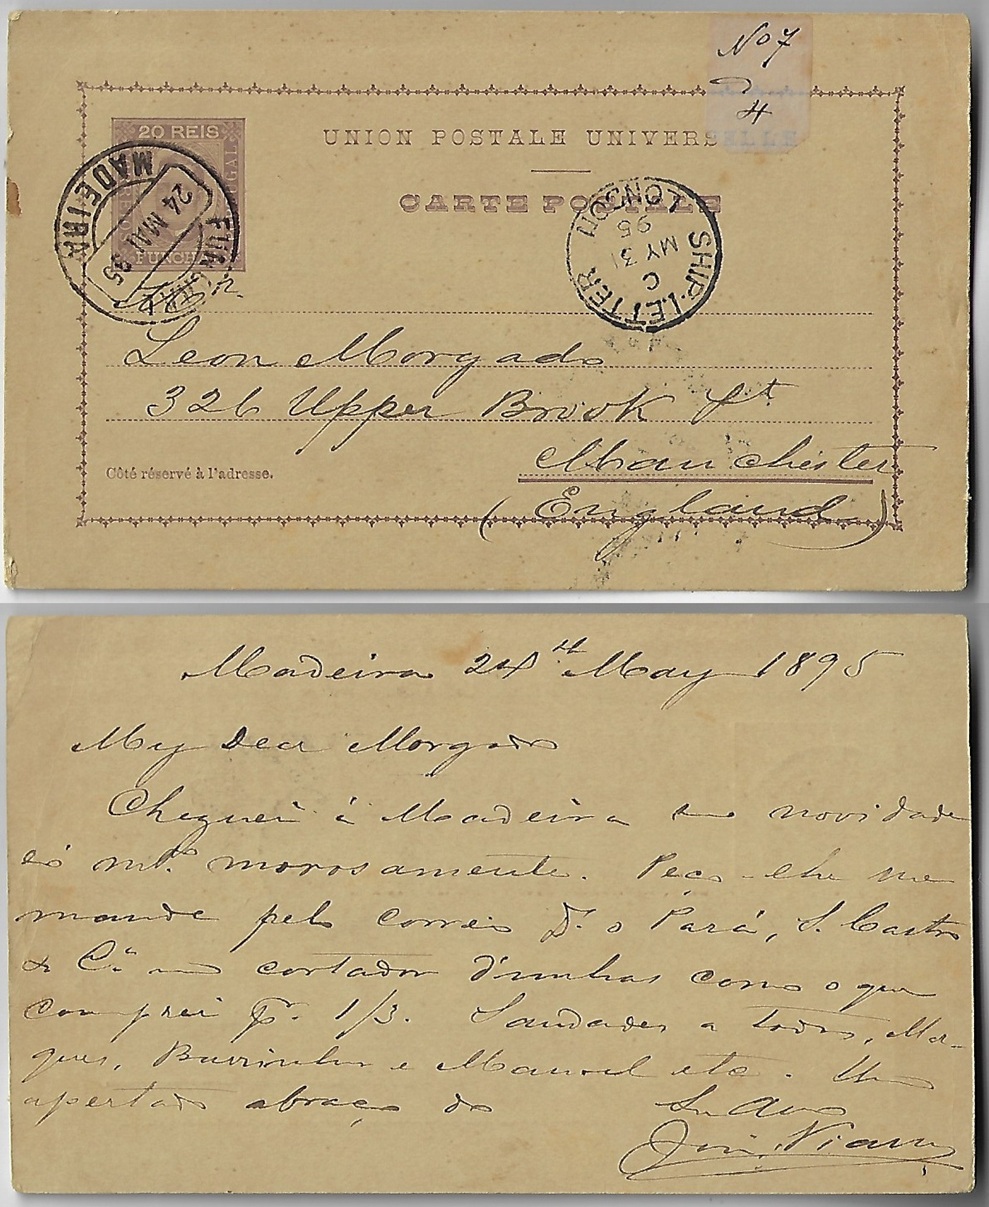 No 7
4
20 REIS
UNION POSTALE UNIVERSELLE
CARTE POSTALE
MADEIRA
24 MAI 95
FUNCHAL
SHIP-LETTER
C
MY 31
95
LONDON
Leon Morgado
326 Upper Brook St
Manchester
Côté réservé à l'adresse.
(England)
Madeira 24th May 1895
My Dear Morgado
Cheguei á Madeira novidade
mto. morosamente. Peço-lhe me
mande pelo correio o Pará, S. Castro
& Ca. um cortador d'unhas como o que
comprei pr. 1/3. Saudades a todos, Mar-
ques, e Manoel etc. Um
apertado abraço do
Seu Amo
Vianna